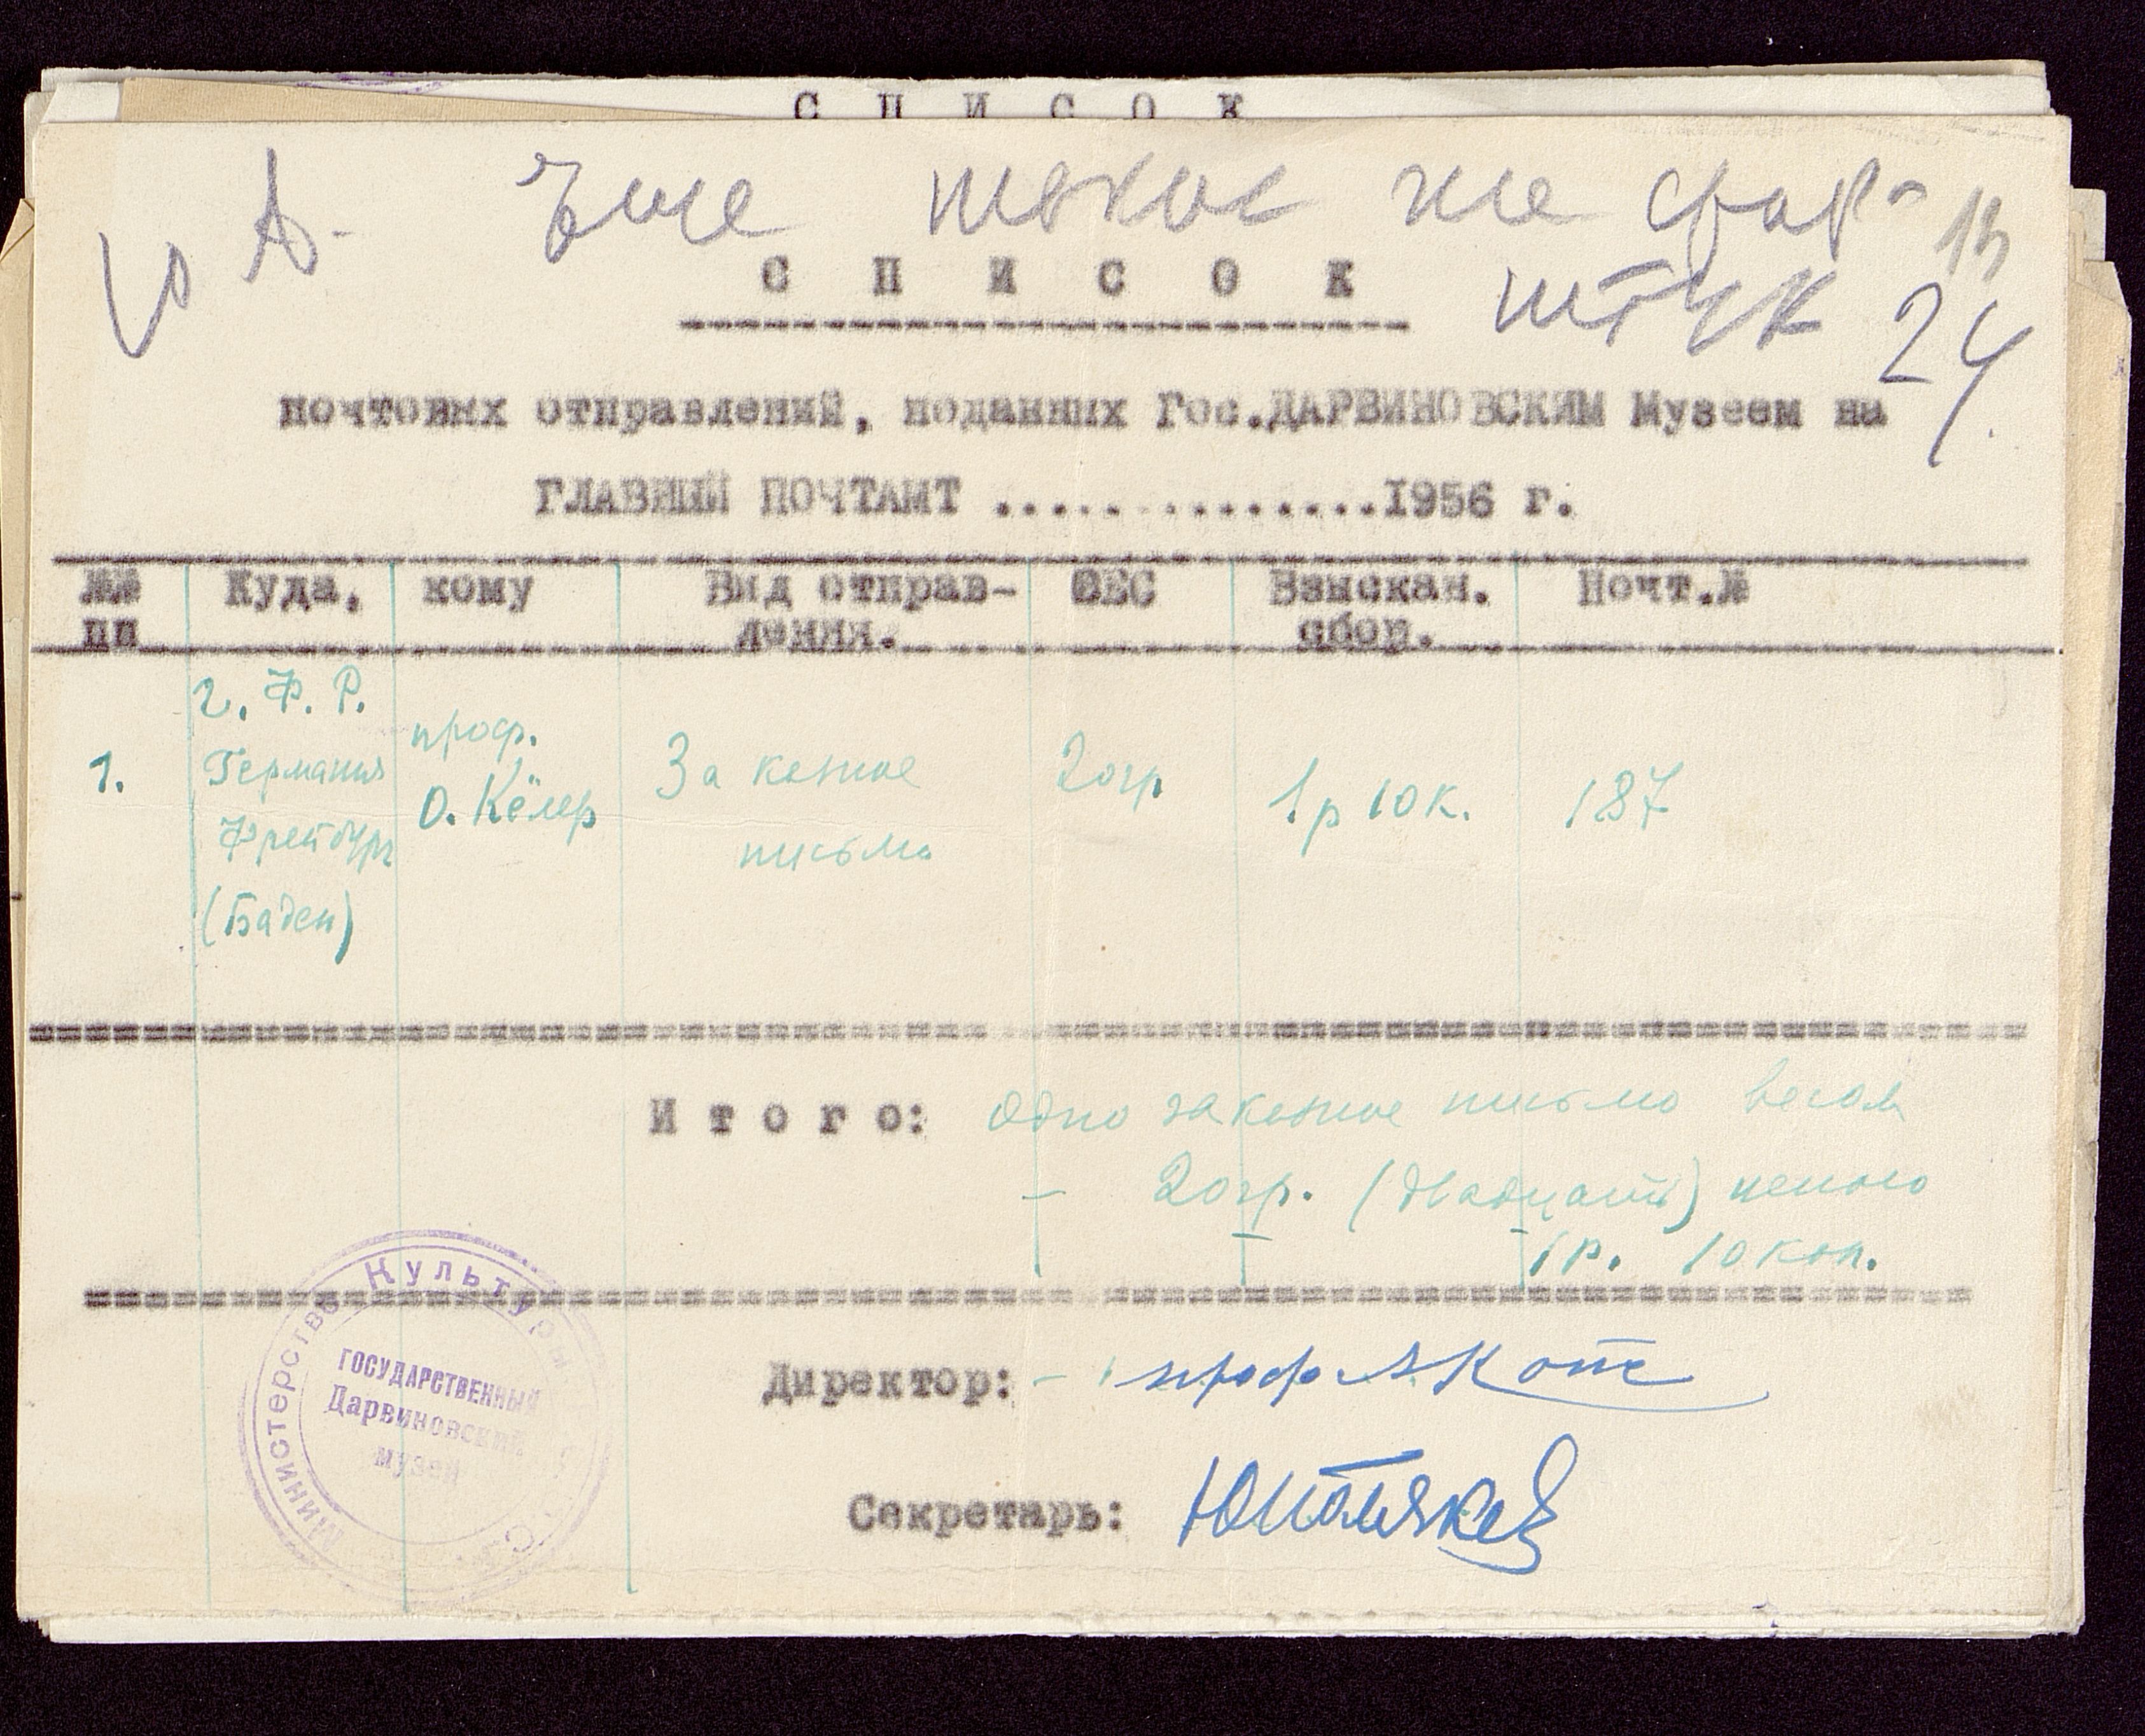 С П И С О К
Еще такое же
С П И С О К
штук 24
почтовых отправлений, поданных Гос.ДАРВИНОВСКИМ Музеем на
ГЛАВНЫЙ ПОЧТАМТ ...............1956 г.
№№ Куда, кому Вид отправ- ВЕС Взыскан. Почт.№
пп ления. сбор.
г. Ф. Р.
1. Германия проф. Заказное 20гр 1р 10к. 187
Фрейбург О. Кёлер письмо
(Баден)
И т о г о: Одно заказное письмо весом
20гр. (двадцать) ценою
1р. 10 коп.
Министерство Культуры
ГОСУДАРСТВЕННЫЙ
Дарвиновский
музей
Директор: проф А Котс
Секретарь: